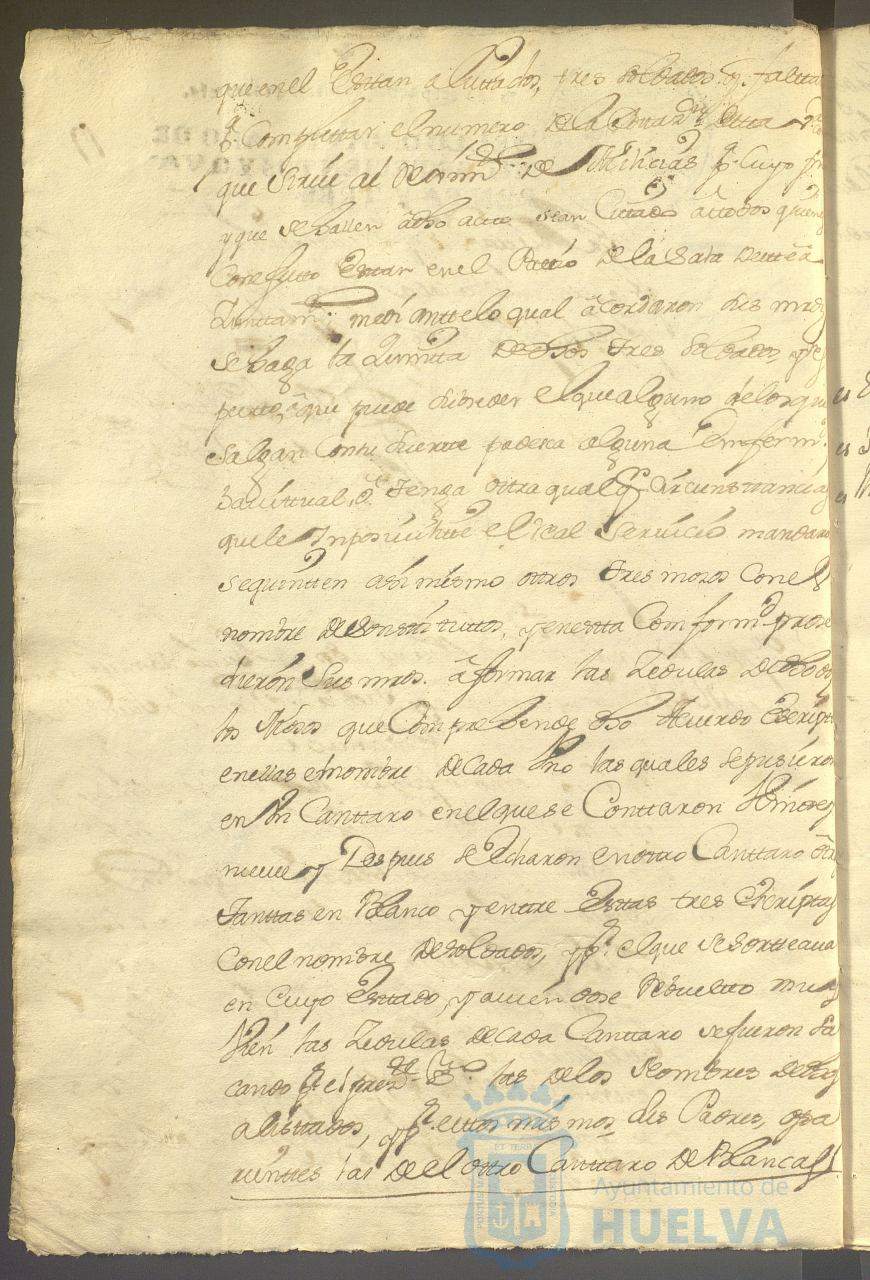 que en el Esttan alisttados, tres soldados q.e faltta
p.a Complettar el numero de la
que sirve al Reximi.to de Milicias p.a Cuyo
y que se hallen a dho actto sean Cittados a ttodos quienes
Con efectto Estan en el Pattio de la Sala de estte
Aiunttam.to mediantte lo qual acordaron sus mrds
se haga la Quintta de dhos tres Soldados, y
que puede suseder el que alguno de los que
Salgan Con su suertte padesca alguna Emferm.d
havittual, o tenga ottra qualq.a Circunstancias
que le Inposivilitte el Real Servicio mandaron
se quintten asi mismo ottros tres mosos con el
nombre de Sonstituttos, y en estta Comform.d prose
dieron Sus mrds. a formar las Zedulas de ttodos
los Mosos que Comprehende dho Acuerdo Escripto
en ellas el nombre de cada Uno las quales se pusieron
en Un Canttaro en el que se Conttaron
nueve y Despues se Echaron en otro Canttaro otras
tanttas en Blanco y entre Esttas tres Escriptas
Con el nombre de Soldados, y p.r el que se sorteava
en Cuyo Esttado, y aviendose Rebueltto muy
bien las Zedulas de cada Canttaro se fueron sa
cando p.r el pres.te Es.no las de los Nombres de los
alisttados, y p.r estos mismos sus Padres, o pa
rienttes las de el ottro Canttaro de Blancas
Ayuntamiento de
HUELVA